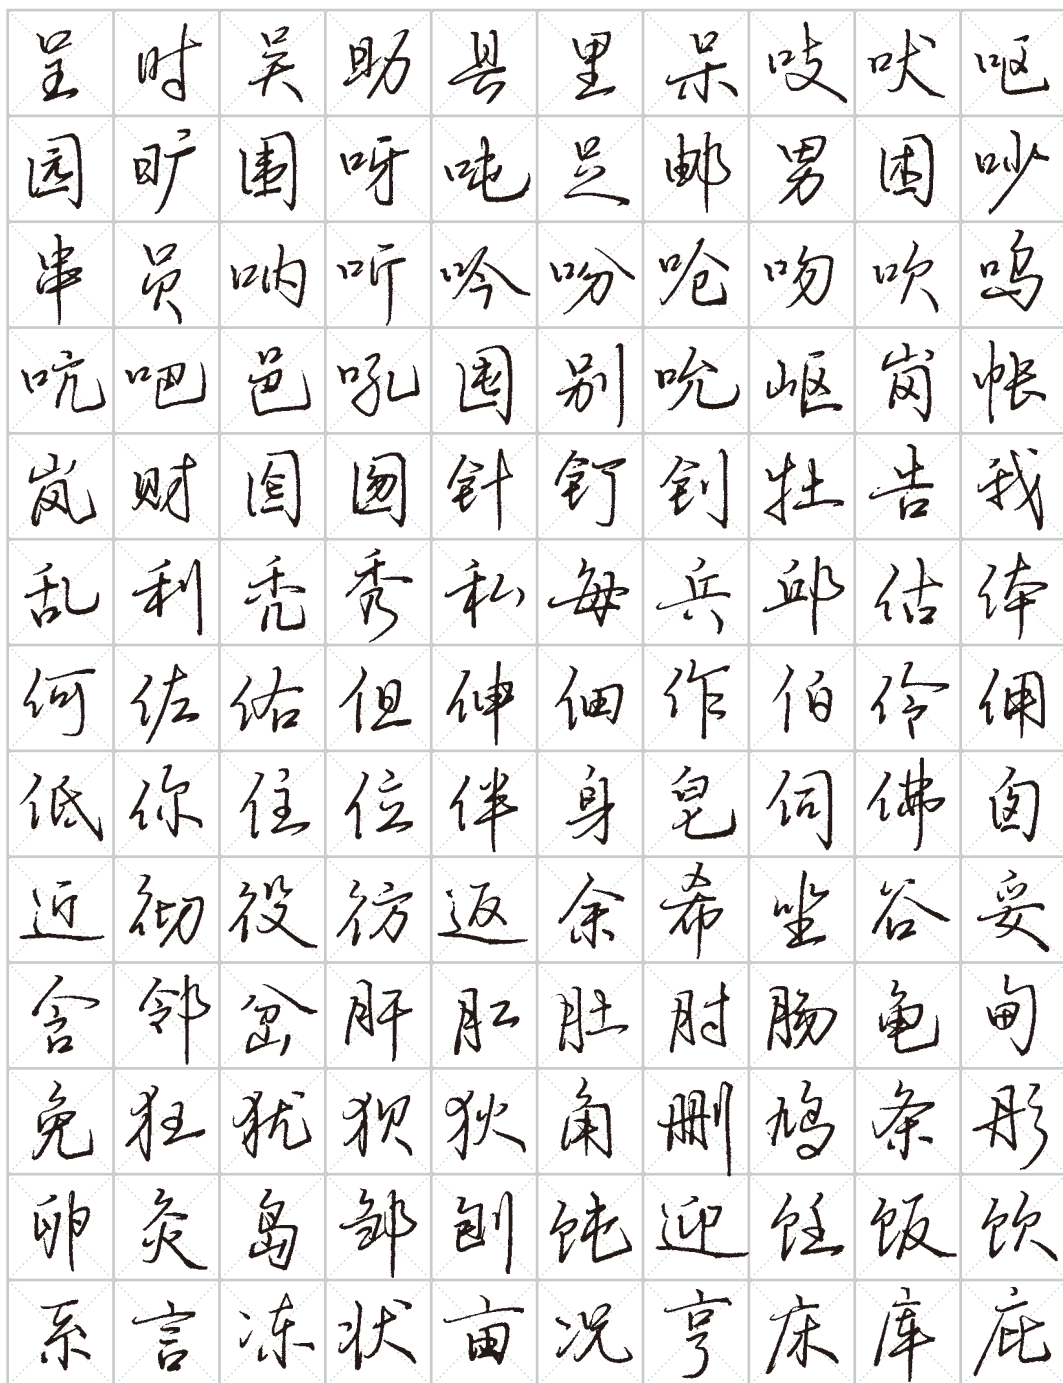 呈时吴助县里呆吱吠呕
园旷围呀吨足邮男困吵
串员呐听吟吩呛吻吹呜
吭吧邑吼囤别吮岖岗帐
岚财囵囫针钉钊牡告我
乱利秃秀私每兵邱估体
何佐佑但伸佃作伯伶佣
低你住位伴身皂伺佛囱
近彻役彷返余希坐谷妥
含邻岔肝肛肚肘肠龟甸
免狂犹狈狄角删鸠条彤
卵灸岛邹刨饨迎饪饭饮
系言冻状亩况亨床库庇